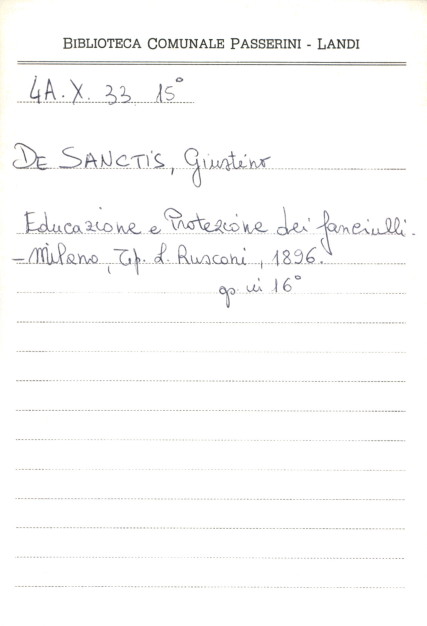 BIBLIOTECA COMUNALE PASSERINI - LANDI
4A. X. 33 15°
DE SANCTIS, Giustino
Educazione e Protezione dei fanciulli.
- Milano, Tip. L. Rusconi, 1896.
in 16°